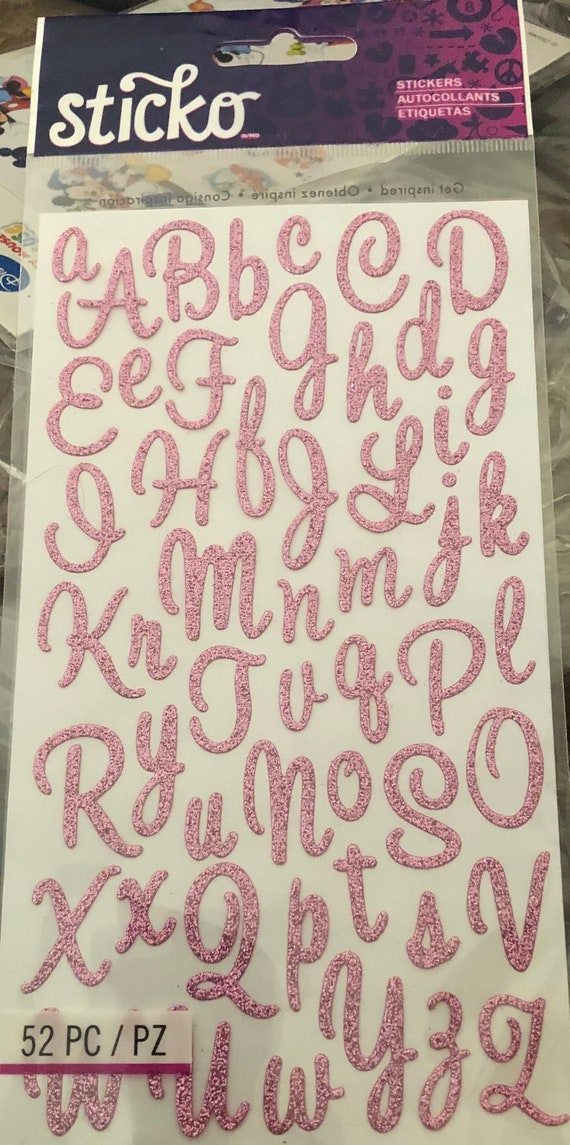 sticko
STICKERS
AUTOCOLLANTS
ETIQUETAS
Get inspired • Obtenez inspire • Consiga inspiracion
a A B b c C D
E e F G h d g
I H f J L i j k
K r M n m l
R y T v q P
u N o S O
X x Q p t s V
W U w Y z Z
52 PC / PZ